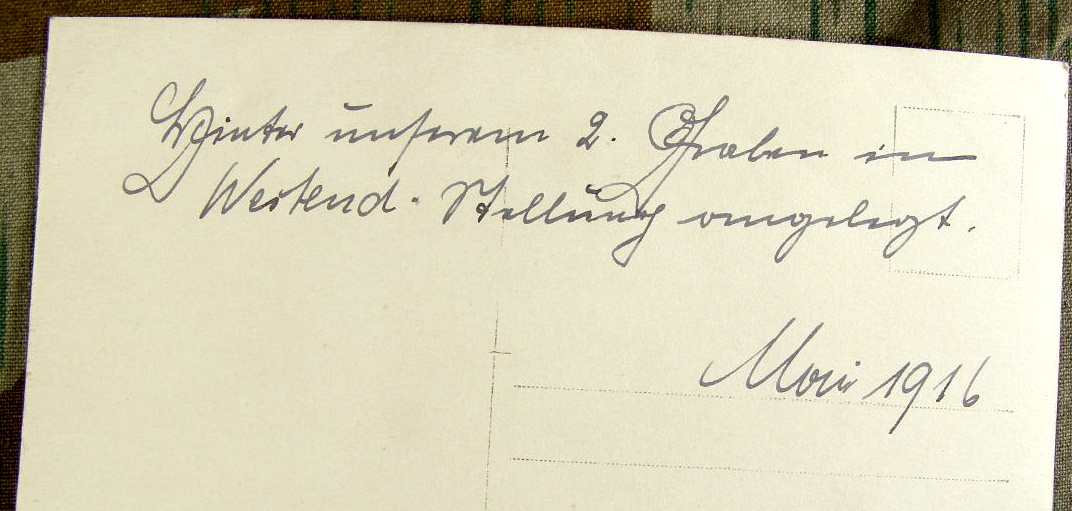 Hinter unserem 2. Graben in
Westend-Stellung angelegt.
Mai 1916